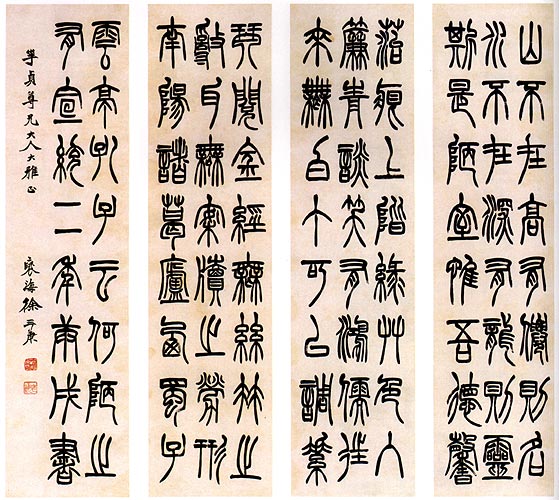 山不在高有僊則名
水不在深有龍則靈
斯是陋室惟吾德馨
菭痕上階綠艸色入
簾青談笑有鴻儒往
來無白丁可以調素
琴閱金經無絲竹之
亂耳無案牘之勞形
南陽諸葛廬西蜀子
雲亭孔子云何陋之
有宣統二年庚戌書
貞尊兄大人大雅正
褎海徐三庚